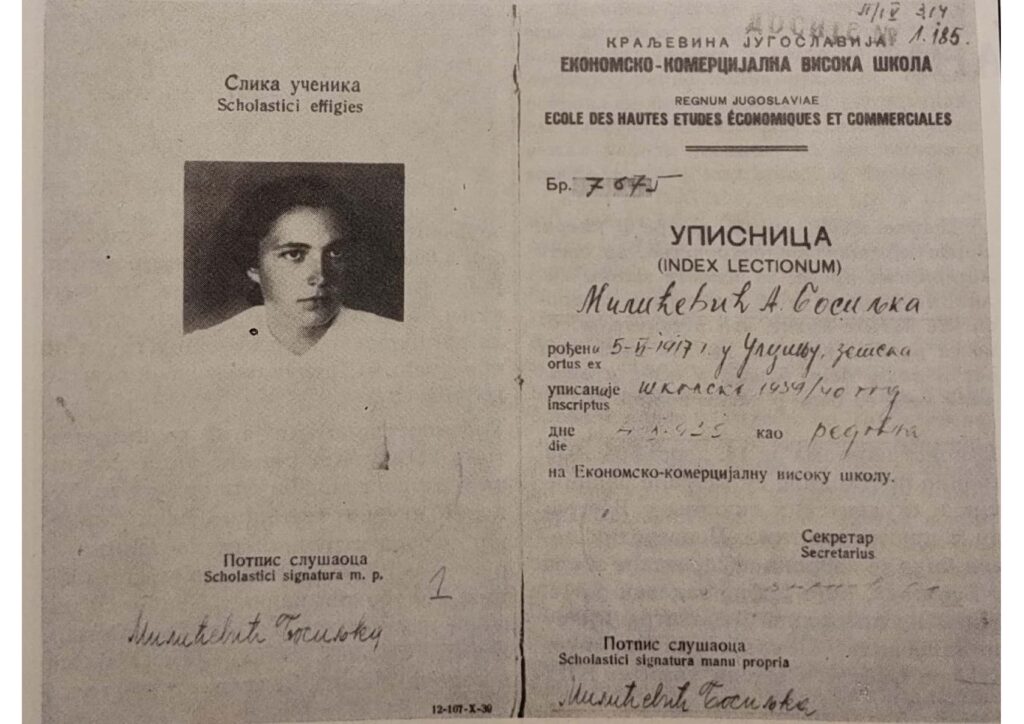 Слика ученика
Scholastici effigies
Потпис слушаоца
Scholastici signatura m. p.
1
Милићевић Босиљка
12-107-X-39
11/IV 314
ДОСИЈЕ № 1.185.
КРАЉЕВИНА ЈУГОСЛАВИЈА
ЕКОНОМСКО-КОМЕРЦИЈАЛНА ВИСОКА ШКОЛА
REGNUM JUGOSLAVIAE
ECOLE DES HAUTES ETUDES ÉCONOMIQUES ET COMMERCIALES
Бр. 7675
УПИСНИЦА
(INDEX LECTIONUM)
Милићевић А. Босиљка
рођена 5-VI-1917 г. у Улцињу, зетска
ortus ex
уписанаје школске 1939/40 год
inscriptus
дне као редовна
die
на Економско-комерцијалну високу школу.
Секретар
Secretarius
Потпис слушаоца
Scholastici signatura manu propria
Милићевић Босиљка